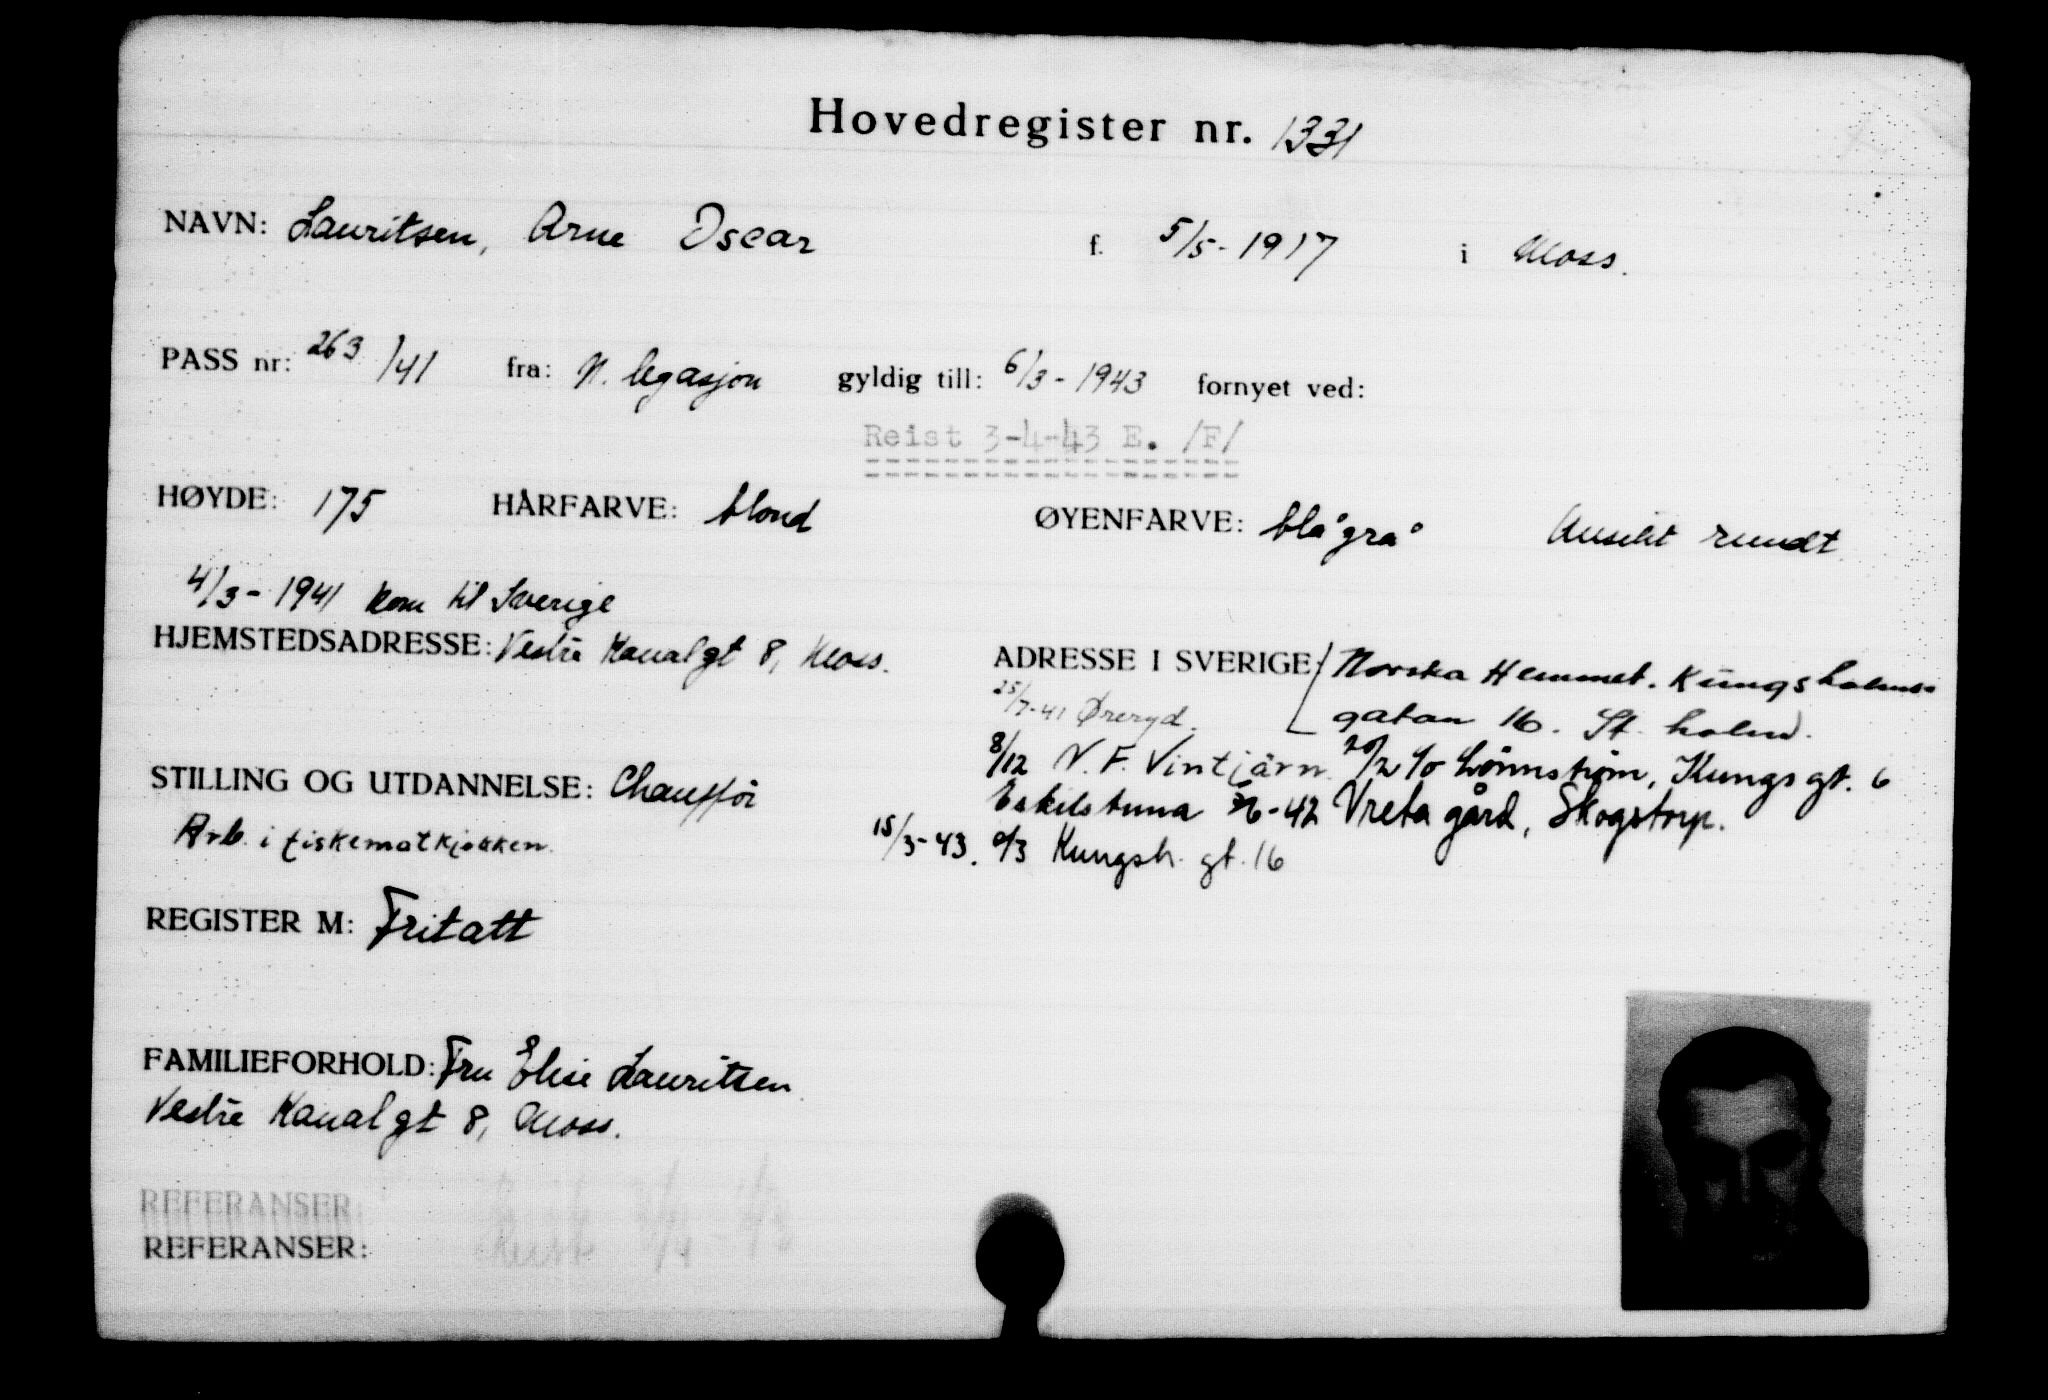 Hovedregister nr. 1331
NAVN: Lauritsen, Arne Oscar f. 5/5- 1917 i Moss.
PASS nr: 263/41 fra: N. legasjon gyldig till: 6/3- 1943 fornyet ved:
Reist 3-4-43 E. /F/
HØYDE: 175 HÅRFARVE: blond ØYENFARVE: blågrå Ansikt rundt
4/3- 1941 kom til Sverige
HJEMSTEDSADRESSE: Vestre Kanalgt 8, Moss.
ADRESSE I SVERIGE: Norska Hemmet. Kungsholms-
gatan 16. St. holm.
25/7-41 Øreryd.
8/12 N. F. Vintjärn 20/2 c/o Lönnström, Kungsgt. 6
Eskilstuna 6-42 Vreta gård, Skogstorp.
15/3-43. Kungsh. gt. 16
STILLING OG UTDANNELSE: Chauffør
Arb. i fiskematkjøkken.
REGISTER M: Fritatt
FAMILIEFORHOLD: Fru Elise Lauritsen
Vestre Kanalgt 8, Moss.
REFERANSER:
REFERANSER: